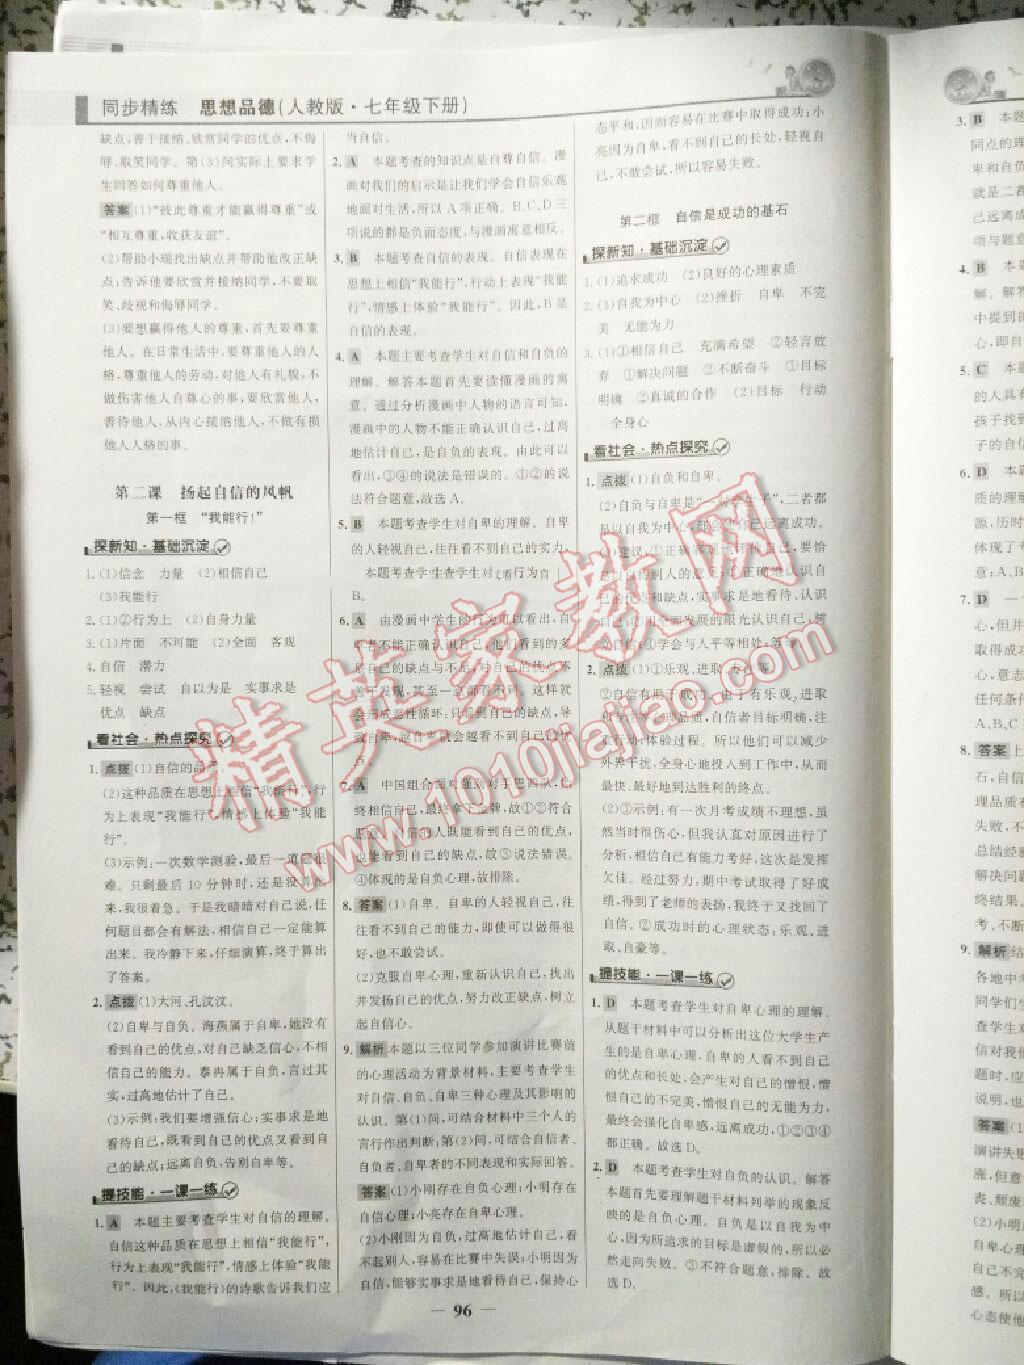 同步精练 思想品德(人教版·七年级下册)
缺点,善于接纳、欣赏同学的优点,不侮
辱、取笑同学。第(3)问实际上要求学
生回答如何尊重他人。
答案 (1)“彼此尊重才能赢得尊重”或
“相互尊重,收获友谊”。
(2)帮助小瑞找出缺点并帮助他改正缺
点;告诉他要欣赏并接纳同学,不要取
笑、歧视和侮辱同学。
(3)要想赢得他人的尊重,首先要尊重
他人。在日常生活中,要尊重他人的人
格,尊重他人的劳动,对他人有礼貌,不
做伤害他人自尊心的事;要欣赏他人,
善待他人,从内心接纳他人,不做有损
他人人格的事。
第二课 扬起自信的风帆
第一框 “我能行!”
探新知·基础沉淀
1. (1)信念 力量 (2)相信自己
(3)我能行
2. (1)②行为上 (2)自身力量
3. (1)片面 不可能 (2)全面 客观
4. 自信 潜力
5. 轻视 尝试 自以为是 实事求是
优点 缺点
看社会·热点探究
1. 点拨 (1)自信的品质。
(2)这种品质在思想上相信“我能行”,行
为上表现“我能行”,情感上体验“我能
行”。
(3)示例:一次数学测验,最后一道题很
难。只剩最后10分钟时,还是没有算出
来,我很着急。于是我暗暗对自己说,任
何题目都会有解法,相信自己一定能算
出来。我冷静下来,仔细演算,终于算出
了答案。
2. 点拨 (1)大河、孔汶汶。
(2)自卑与自负。海燕属于自卑,她没有
看到自己的优点,对自己缺乏信心,不相
信自己的能力。泰冉属于自负,言过其
实,过高地估计了自己。
(3)示例:我们要增强信心;实事求是地
看待自己,既看到自己的优点又看到自
己的缺点;远离自负,告别自卑等。
提技能·一课一练
1. A 本题主要考查学生对自信的理解。
自信这种品质在思想上相信“我能行”,
行为上表现“我能行”,情感上体验“我能
行”。因此,《我能行》的诗歌告诉我们应
当自信。
2. A 本题考查的知识点是自尊自信。漫
画对我们的启示是让我们学会自信乐观
地面对生活,所以A项正确。B、C、D三
项说的都是负面态度,与漫画寓意相反。
3. B 本题考查自信的表现。自信表现在
思想上相信“我能行”,行动上表现“我能
行”,情感上体验“我能行”。因此,B是
自信的表现。
4. A 本题主要考查学生对自信和自负的
理解。解答本题首先要读懂漫画的寓
意。通过分析漫画中人物的语言可知,
漫画中的人物不能正确认识自己,过高
地估计自己,是自负的表现。由此可以
看出,③④的说法是错误的。①②的说
法符合题意,故选A。
5. B 本题考查学生对自卑的理解。自卑
的人轻视自己,往往看不到自己的实力。
本题考查学生查学生对(看行为自
B。
6. A 由漫画中学生的行为可以看出,自
卑者不能正确认识自己,他们看到的多
是自己的缺点与不足,对自己的优点不
善于发现,甚至一点都看不到。这样就
会形成恶性循环:只看到自己的缺点,导
致自卑,越自卑就会越看不到自己的优
点。
7. A 中国组合面对强劲对手巴西队,始
终相信自己,最终拿下金牌,故①②符合
题意。自信的人既能看到自己的优点,
也能看到自己的缺点,故③说法错误。
④体现的是自负心理,故排除。
8. 答案 (1)自卑。自卑的人轻视自己,往
往看不到自己的能力,即使可以做得很
好,也不敢尝试。
(2)克服自卑心理,重新认识自己,找出
并发扬自己的优点,努力改正缺点,树立
起自信心。
9. 解析 本题以三位同学参加演讲比赛前
的心理活动为背景材料,主要考查学生
对自信、自负、自卑三种心理及其影响的
认识。第(1)问,可结合材料中三个人的
言行作出判断;第(2)问,可结合自信者、
自负者、自卑者的不同表现和实际回答。
答案 (1)小刚存在自负心理;小明存在
自信心理;小亮存在自卑心理。
(2)小刚因为自负,过高地估计自己,看
不起别人,容易在比赛中失误;小明因为
自信,能够实事求是地看待自己,保持心
态平和,因而容易在比赛中取得成功;小
亮因为自卑,看不到自己的长处,轻视自
己,不敢尝试,所以容易失败。
第二框 自信是成功的基石
探新知·基础沉淀
1. (1)追求成功 (2)良好的心理素质
2. (1)自我为中心 (2)挫折 自卑 不完
美 无能为力
3. (1)①相信自己 充满希望 ②轻言放
弃 ①解决问题 ②不断奋斗 ①目标
明确 ②真诚的合作 (2)目标 行动
全身心
看社会·热点探究
1. 点拨 (1)自负和自卑。
(2)自负与自卑是“一对孪生子”,二者都
是以自我为中心,都会使自己远离成功。
(3)建议:①正确客观地评价自己,要恰
当地对待别人的意见;②正确地认识自
己的优点和缺点,实事求是地看待、认识
自己;③用全面发展的眼光认识自己,鼓
励自信;④学会与人平等相处;等等。
2. 点拨 (1)①乐观、进取、专注等。
②自信有助于成功。由于有乐观、进取
和专注等心理品质,自信者目标明确,注
重行动、体验过程。所以他们可以减少
外界干扰,全身心地投入到工作中,从而
最快、最好地到达胜利的终点。
(2)③示例:有一次月考成绩不理想,虽
然当时很伤心,但我认真对原因进行了
分析,相信自己有能力考好,这次是发挥
欠佳。经过努力,期中考试取得了好成
绩,得到了老师的表扬,我终于又找回了
自信。②成功时的心理状态:乐观、进
取、自豪等。
提技能·一课一练
1. D 本题考查学生对自卑心理的理解。
从题干材料中可以分析出这位大学生产
生的是自卑心理,自卑的人看不到自己
的优点和长处,会产生对自己的憎恨,憎
恨自己的不完美,憎恨自己的无能为力,
最终会强化自卑感,远离成功,①②③④
都正确。故选D。
2. D 本题考查学生对自负的认识。解答
本题首先要理解题干材料列举的现象反
映的是自负心理。自负是以自我为中
心,因为所追求的目标是虚假的,所以必
然走向失败。③不符合题意,排除。故
选D。
— 96 —
3. B 本题
同点的理
卑和自负
就是二者
己远离成
项与题意
4. B 本
解。解答
中提到的
心,即自
5. C 本题
的人具有
孩子找到
子的自信
6. D 本
质的理解
源,历时
体现了专
意;A、B
7. D 一个
心,但并
取得成功
心,意志
任何条件
A、B、C
8. 答案
石,自信
理品质在
失败,不
总结经验
解决问题
终结果。
考、不断
9. 解析 结
各地中
同学们
查学生对
信对我们
题时,应
说明,也
答案 (1
演讲失败
涨,但意
丧、颓废
(2)小明
自卑心理
自己不完
感。所以
心态使他
精英家教网
www.1010jiajiao.com